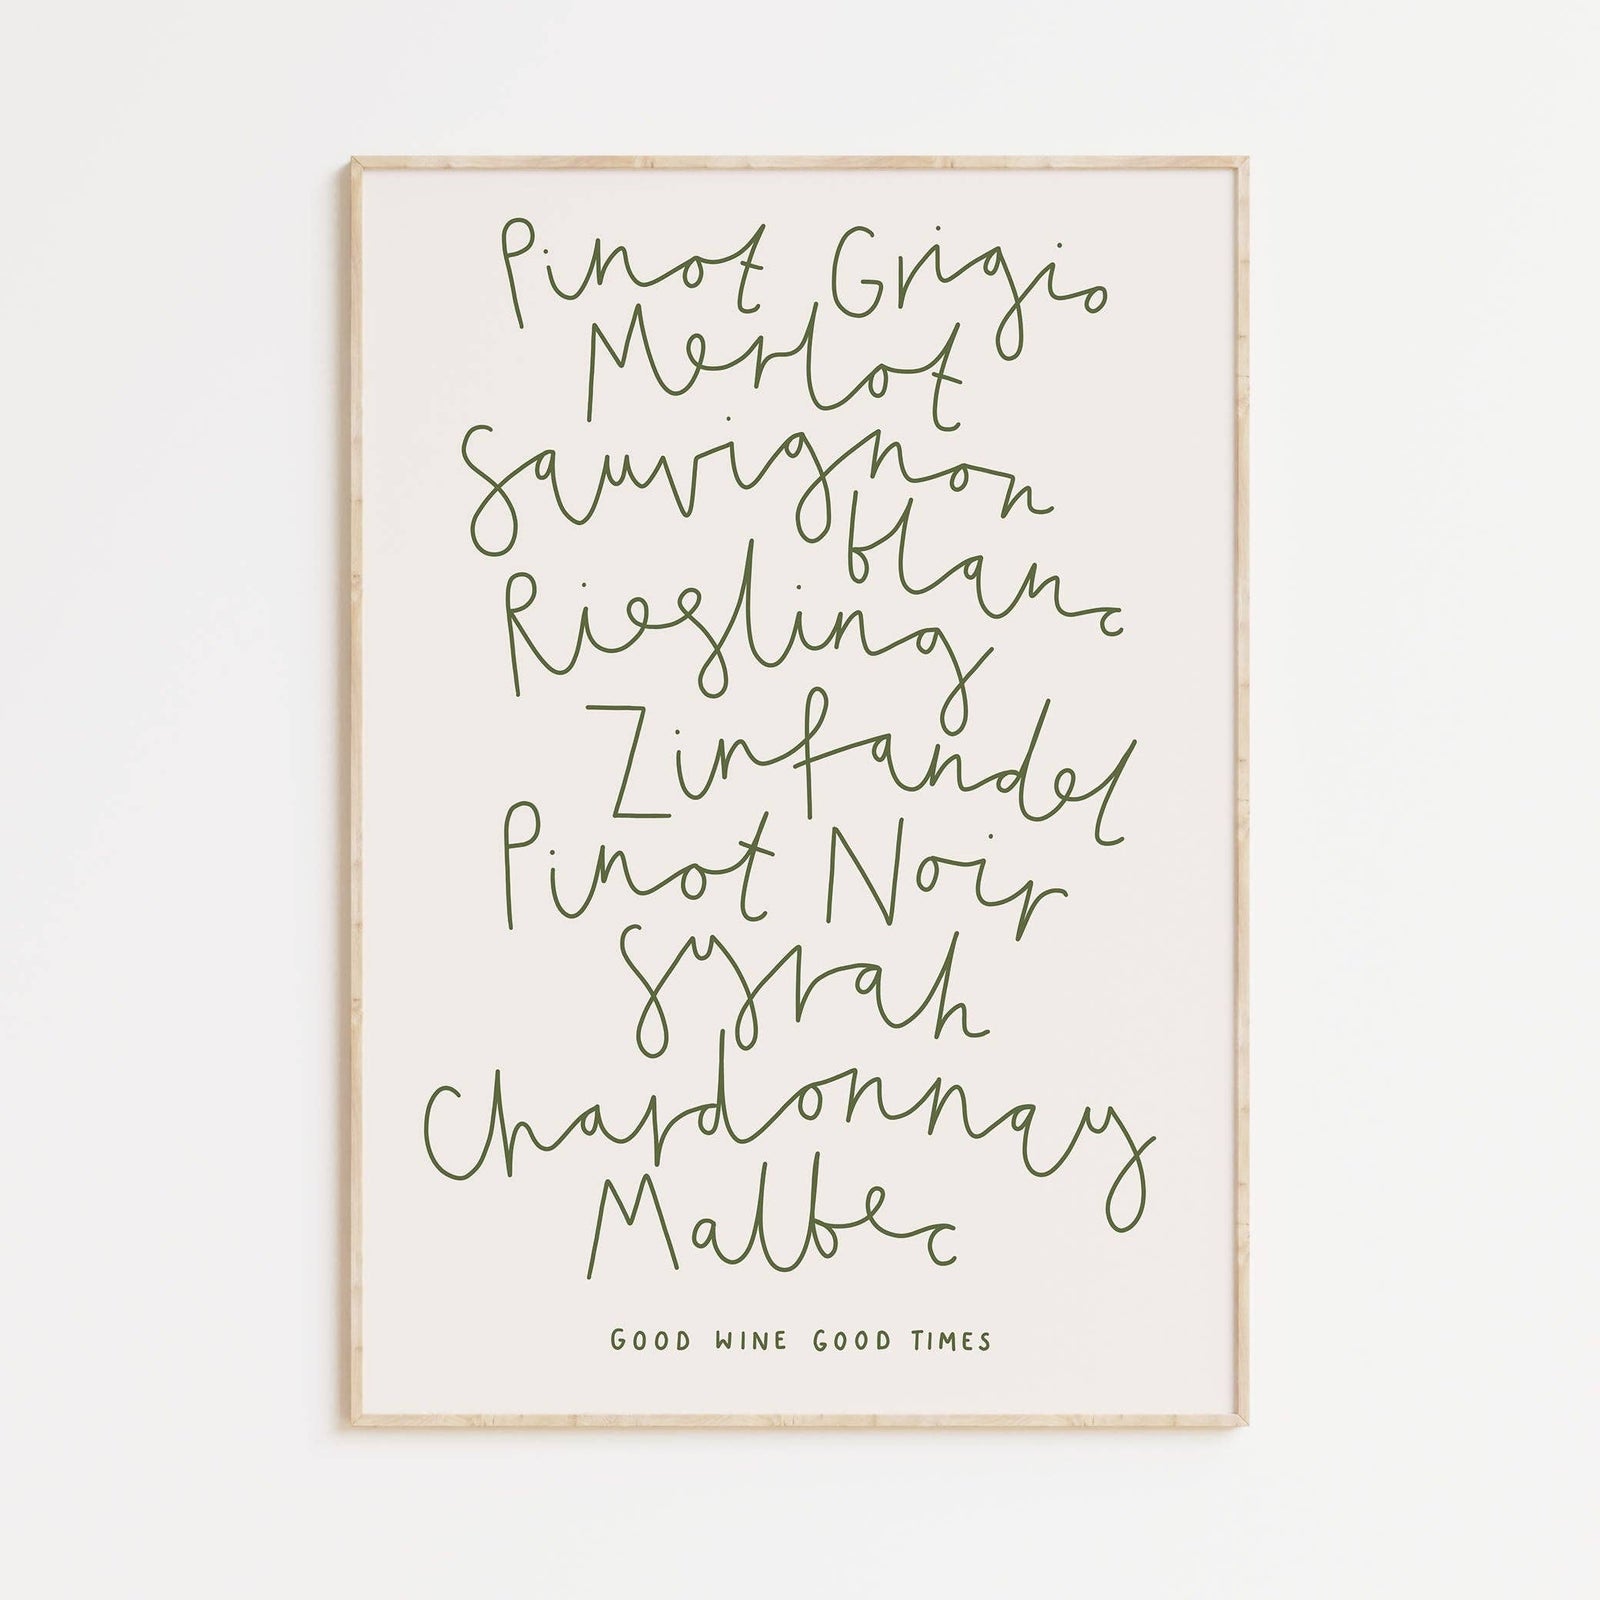 Pinot Grigio
Merlot
Sauvignon
blanc
Riesling
Zinfandel
Pinot Noir
Syrah
Chardonnay
Malbec
GOOD WINE GOOD TIMES